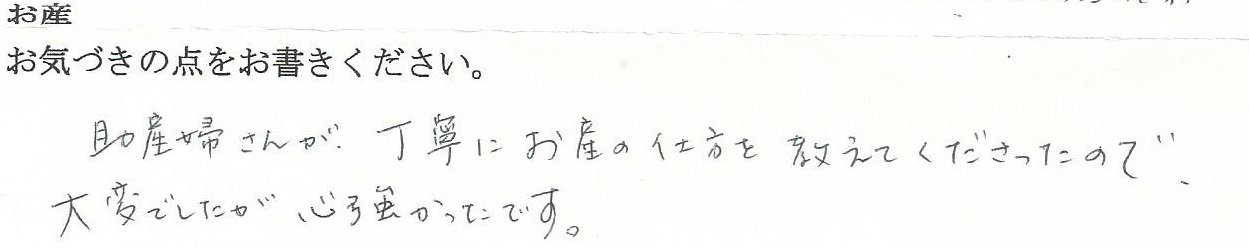 お産
お気づきの点をお書きください。
助産婦さんが、丁寧にお産の仕方を教えてくださったので、
大変でしたが心強かったです。